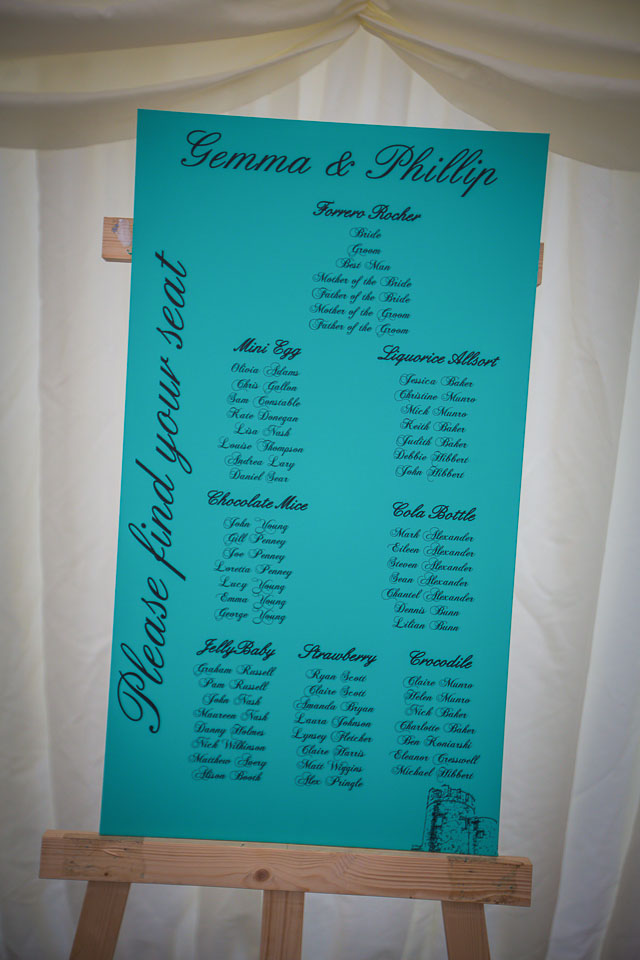 Gemma & Phillip
Please find your seat
Forrero Rocher
Bride
Groom
Best Man
Mother of the Bride
Father of the Bride
Mother of the Groom
Father of the Groom
Mini Egg
Olivia Adams
Chris Gallon
Sam Constable
Kate Donegan
Lisa Nash
Louise Thompson
Andrea Lary
Daniel Sear
Liquorice Allsort
Jessica Baker
Christine Munro
Mick Munro
Keith Baker
Judith Baker
Debbie Hibbert
John Hibbert
Chocolate Mice
John Young
Gill Penney
Joe Penney
Loretta Penney
Lucy Young
Emma Young
George Young
Cola Bottle
Mark Alexander
Eileen Alexander
Steven Alexander
Sean Alexander
Chantel Alexander
Dennis Bunn
Lilian Bunn
JellyBaby
Graham Russell
Pam Russell
John Nash
Maureen Nash
Danny Holmes
Nick Wilkinson
Matthew Avery
Alison Booth
Strawberry
Ryan Scott
Claire Scott
Amanda Bryan
Laura Johnson
Lynsey Fletcher
Claire Harris
Matt Wiggins
Alex Pringle
Crocodile
Claire Munro
Helen Munro
Nick Baker
Charlotte Baker
Ben Koniarski
Eleanor Cresswell
Michael Hibbert